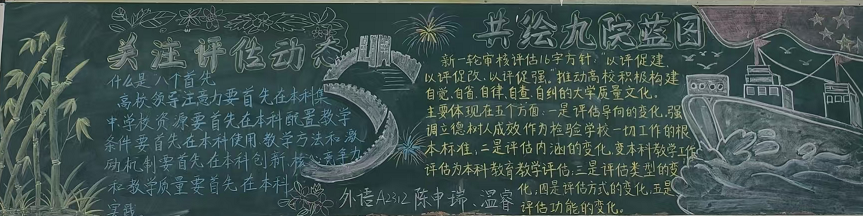 关注评估动态
什么是八个首先
高校领导注意力要首先在本科集
中,学校资源要首先在本科配置,教学
条件要首先在本科使用,教学方法和激
励机制要首先在本科创新,核心竞争力
和教学质量要首先在本科
实践
外语A2312 陈申瑞、温睿
共绘九院蓝图
新一轮审核评估16字方针:以评促建、
以评促改、以评促强。推动高校积极构建
自觉、自省、自律、自查、自纠的大学质量文化。
主要体现在五个方面:一是评估导向的变化,强
调立德树人成效作为检验学校一切工作的根
本标准,二是评估内涵的变化,变本科教学工作
评估为本科教育教学评估,三是评估类型的变
化,四是评估方式的变化,五是
评估功能的变化。